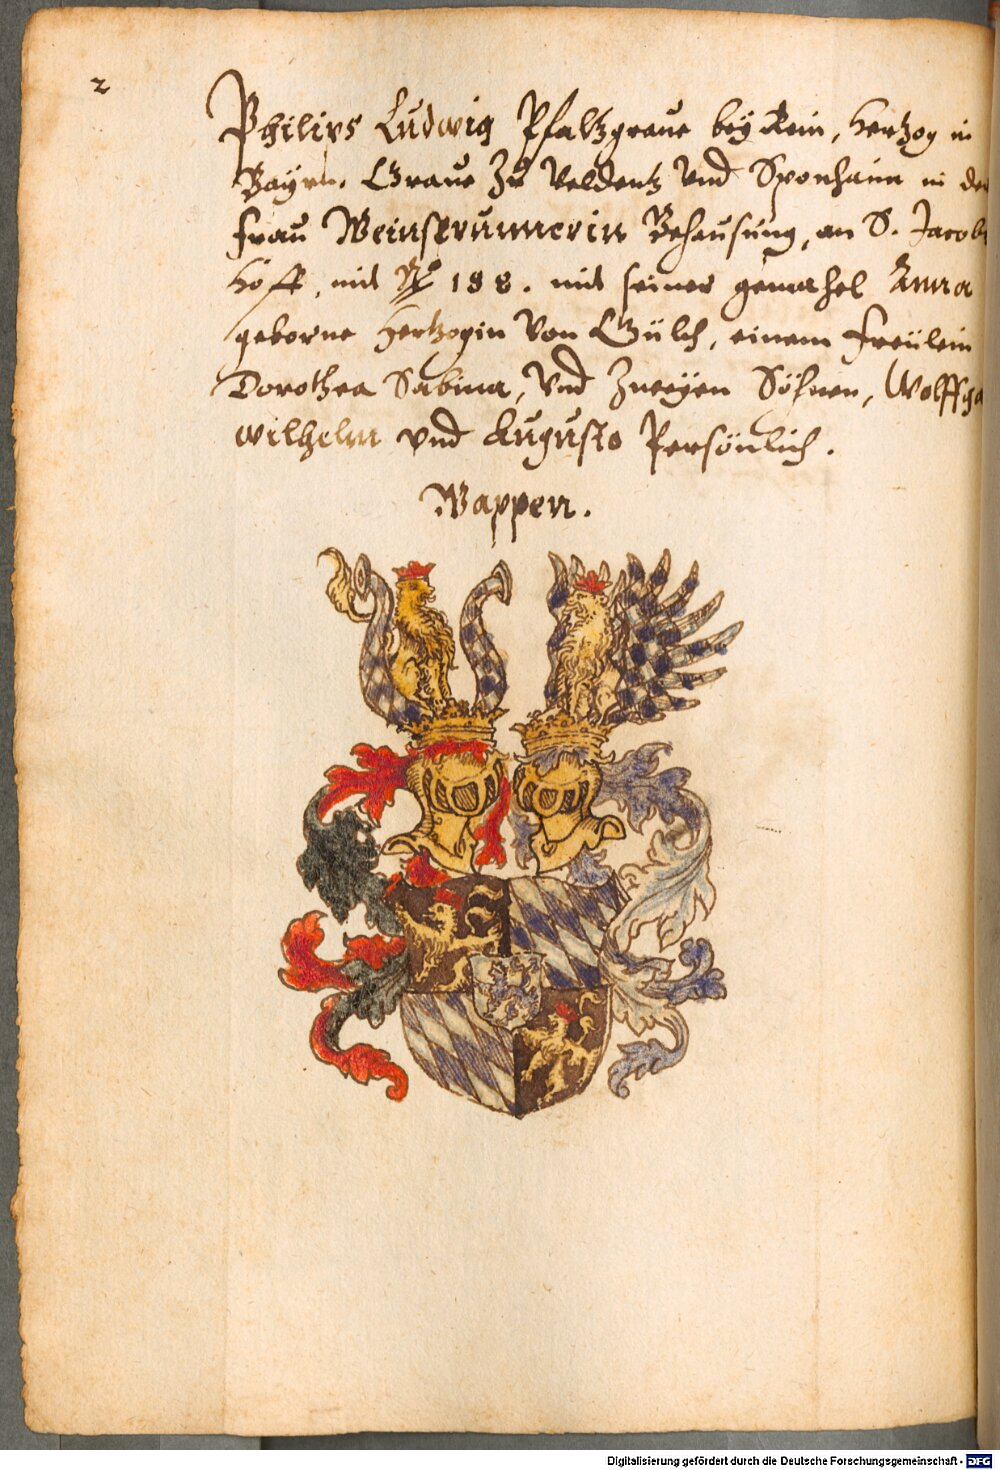 2
Philips Ludwig Pfaltzgraue bey Rein, Hertzog in
Bayrn, Graue Zu Veldentz Vnd Sponhaim in der
Frau Weinsprunnerin Behausung, an S. Jacobs
Hoff, mit No 188. mit seiner gemahel Anna
geborne Hertzogin Von Gülch, einem Freülein
Dorothea Sabina, Vnd Zweyen Söhnen, Wolffga
wilhelm vnd Augusto Persönlich.
Wappen.
Digitalisierung gefördert durch die Deutsche Forschungsgemeinschaft - DFG